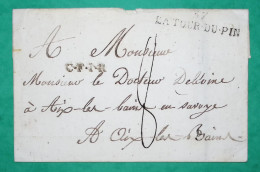 LA TOUR-DU-PIN
A Monsieur
C.F.I.R
Monsieur le Docteur
à Aix les bains en savoye
A Aix les Bains